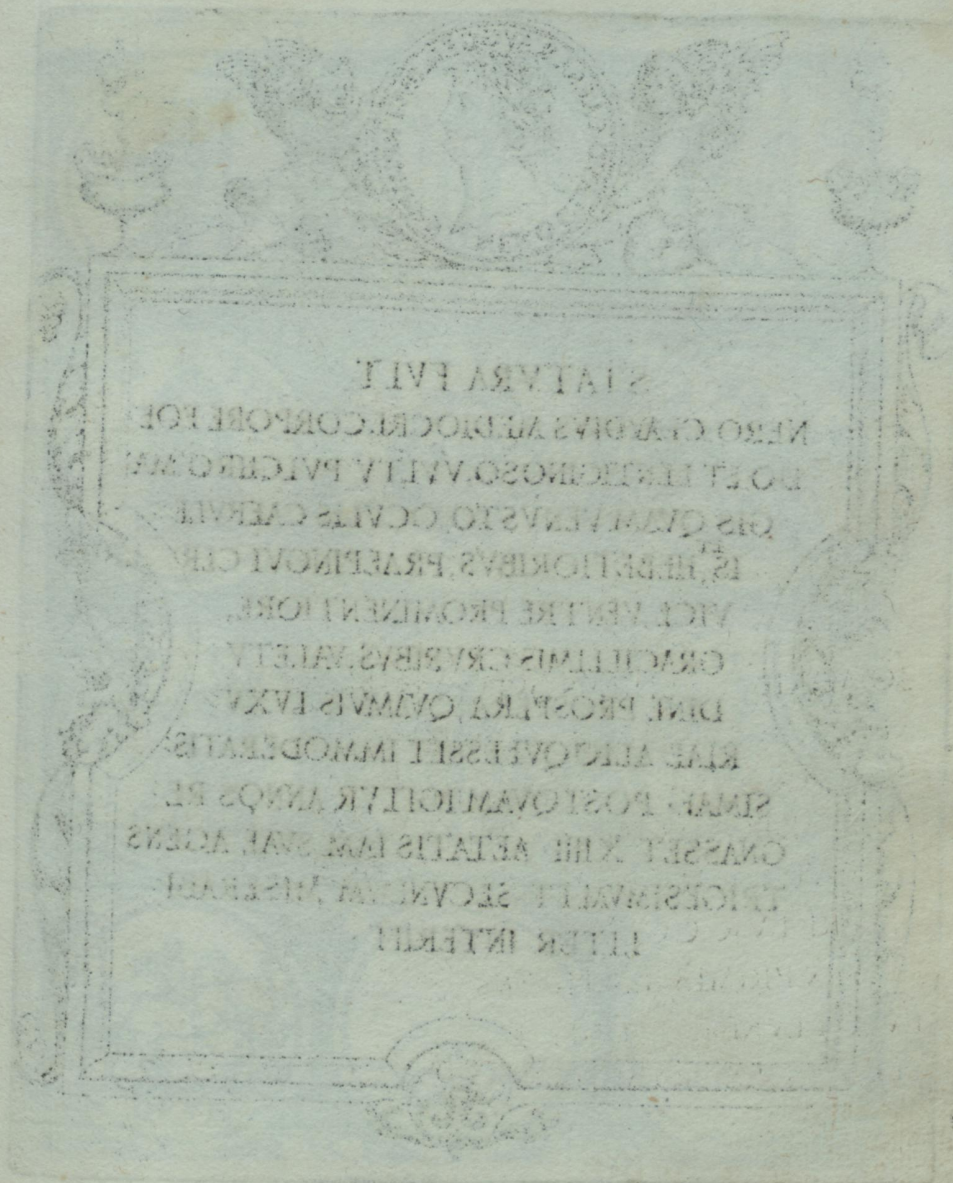 STATVRA FVIT
NERO CLAVDIVS MEDIOCRI.CORPORE FOE
DO ET LENTIGINOSO.VVLTV PVLCHRO MA
GIS QVAM VENVSTO, OCVLIS CAERVLE
IS, HEBETIORIBVS, PRAEPINGVI CER
VICE, VENTRE PROMINENTIORE,
GRACILLIMIS CRVRIBVS, VALETV
DINE PROSPERA, QVAMVIS LVXV
RIAE ALIOQVI ESSET IMMODERATIS
SIMAE POSTQVAM IGITVR ANNOS RE
GNASSET XIIII AETATIS IAM SVAE AGENS
TRIGESIMVM ET SECVNDVM, MISERABI
LITER INTERIIT